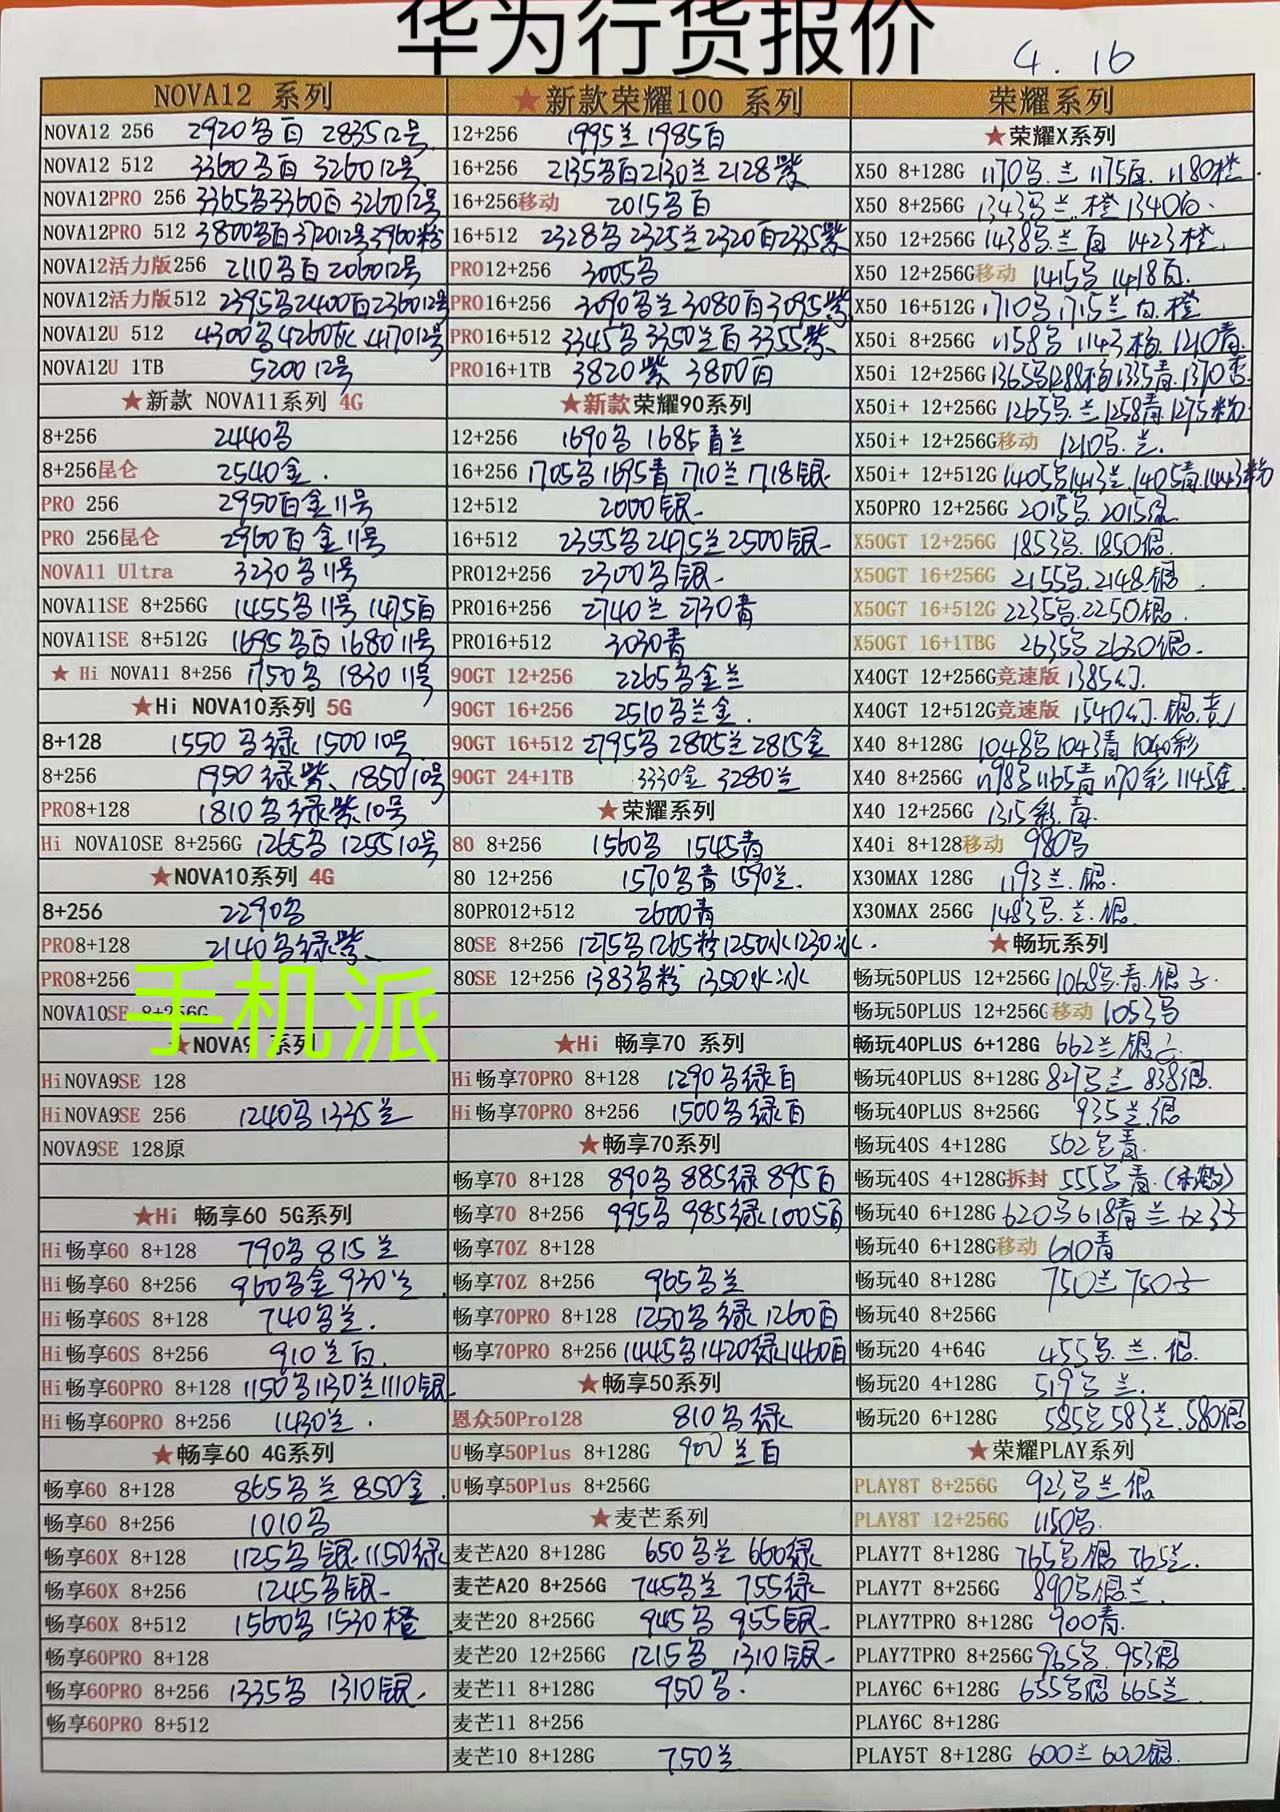 华为行货报价
4.16
NOVA12 系列
NOVA12 256 2920乌白 2835 12号
NOVA12 512 3360乌白 3260 12号
NOVA12PRO 256 3365乌3360白 3260 12号
NOVA12PRO 512 3800乌白3720 12号3960粉
NOVA12活力版256 2110乌白 2060 12号
NOVA12活力版512 2395乌2400白2360 12号
NOVA12U 512 4300乌4260灰 4170 12号
NOVA12U 1TB 5200 12号
★新款 NOVA11系列 4G
8+256 2440乌
8+256昆仑 2540金.
PRO 256 2950白金11号
PRO 256昆仑 2960白金11号
NOVA11 Ultra 3230乌11号
NOVA11SE 8+256G 1455乌11号 1475白
NOVA11SE 8+512G 1695乌白 1680 11号
★ Hi NOVA11 8+256 1750乌 1830 11号
★Hi NOVA10系列 5G
8+128 1550乌绿 1500 10号
8+256 1950绿紫、1850 10号
PRO8+128 1810乌绿紫.10号
Hi NOVA10SE 8+256G 1265乌 1255 10号
★NOVA10系列 4G
8+256 2290乌
PRO8+128 2140乌绿紫
PRO8+256
手机派
NOVA10SE 8+256G
★NOVA9 系列
HiNOVA9SE 128
HiNOVA9SE 256 1240乌1335兰
NOVA9SE 128原
★Hi 畅享60 5G系列
Hi畅享60 8+128 790乌 815兰
Hi畅享60 8+256 960乌金 930兰
Hi畅享60S 8+128 740乌兰.
Hi畅享60S 8+256 910兰白.
Hi畅享60PRO 8+128 1150乌1130兰1110银
Hi畅享60PRO 8+256 1430兰.
★畅享60 4G系列
畅享60 8+128 865乌兰 850金.
畅享60 8+256 1010乌
畅享60X 8+128 1125乌银 1150绿
畅享60X 8+256 1245乌银
畅享60X 8+512 1560乌1530橙
畅享60PRO 8+128
畅享60PRO 8+256 1335乌 1310银
畅享60PRO 8+512
★新款荣耀100 系列
12+256 1995兰 1985白
16+256 2135乌白2130兰 2128紫
16+256移动 2015乌白
16+512 2328乌 2325兰2320白2335紫
PRO12+256 3005乌
PRO16+256 3090乌兰 3080白3095紫
PRO16+512 3345乌 3350兰白 3355紫
PRO16+1TB 3820紫 3800白
★新款荣耀90系列
12+256 1690乌 1685青兰
16+256 1705乌1695青 1710兰1718银
12+512 2000银
16+512 2355乌2495兰2500银
PRO12+256 2300乌银
PRO16+256 2740兰 2730青
PRO16+512 3030青
90GT 12+256 2265乌金兰
90GT 16+256 2510乌兰金.
90GT 16+512 2795乌 2805兰2815金
90GT 24+1TB 3330金 3280兰
★荣耀系列
80 8+256 1560乌 1545青
80 12+256 1570乌青 1590兰.
80PRO12+512 2600青
80SE 8+256 1275乌1265粉1250水1230冰.
80SE 12+256 1383乌粉 1350水冰
★Hi 畅享70 系列
Hi畅享70PRO 8+128 1290乌绿白
Hi畅享70PRO 8+256 1500乌绿白
★畅享70系列
畅享70 8+128 890乌 885绿 895白
畅享70 8+256 995乌 985绿1005白
畅享70Z 8+128
畅享70Z 8+256 965乌兰
畅享70PRO 8+128 1250乌绿 1260白
畅享70PRO 8+256 1445乌1420绿1460白
★畅享50系列
恩众50Pro128 810乌绿
U畅享50Plus 8+128G 900兰白
U畅享50Plus 8+256G
★麦芒系列
麦芒A20 8+128G 650乌兰 660绿
麦芒A20 8+256G 745乌兰 755绿
麦芒20 8+256G 945乌 955银
麦芒20 12+256G 1215乌 1310银
麦芒11 8+128G 950乌.
麦芒11 8+256
麦芒10 8+128G 750兰
荣耀系列
★荣耀X系列
X50 8+128G 1170乌.兰 1175白.1180橙.
X50 8+256G 1343乌兰.橙 1340白.
X50 12+256G 1438乌.兰白 1423橙.
X50 12+256G移动 1415乌 1418白.
X50 16+512G 1710乌 1715兰 白.橙
X50i 8+256G 1158乌 1143粉.1210青.
X50i 12+256G 1365乌1288粉1335青.1370
X50i+ 12+256G 1265乌.兰1258青.1275粉
X50i+ 12+256G移动 1210乌.兰.
X50i+ 12+512G 1405乌1413兰.1405青.1443粉
X50PRO 12+256G 2015乌.2015绿
X50GT 12+256G 1853乌.1850银.
X50GT 16+256G 2155乌.2148银.
X50GT 16+512G 2235乌.2250银.
X50GT 16+1TBG 2635乌2630银.
X40GT 12+256G竞速版 1385幻.
X40GT 12+512G竞速版 1540幻.银.
X40 8+128G 1048乌1043青 1040彩
X40 8+256G 1198乌1165青1170彩 1145金
X40 12+256G 1315彩.青.
X40i 8+128移动 980乌
X30MAX 128G 1193兰.银.
X30MAX 256G 1483乌.兰.银.
★畅玩系列
畅玩50PLUS 12+256G 1068乌.青.银
畅玩50PLUS 12+256G移动 1053乌
畅玩40PLUS 6+128G 662兰银
畅玩40PLUS 8+128G 827乌兰 838银.
畅玩40PLUS 8+256G 935兰.银
畅玩40S 4+128G 562乌青.
畅玩40S 4+128G拆封 555乌青.
畅玩40 6+128G 620乌618青兰 623
畅玩40 6+128G移动 610青
畅玩40 8+128G 750兰 750
畅玩40 8+256G
畅玩20 4+64G 455乌.兰.银.
畅玩20 4+128G 519乌兰.
畅玩20 6+128G 585乌583兰.580银
★荣耀PLAY系列
PLAY8T 8+256G 923乌兰银
PLAY8T 12+256G 1150乌.
PLAY7T 8+128G 765乌银 765兰.
PLAY7T 8+256G 890乌银兰.
PLAY7TPRO 8+128G 900青.
PLAY7TPRO 8+256G 965乌.953银
PLAY6C 6+128G 655乌银 665兰
PLAY6C 8+128G
PLAY5T 8+128G 600兰 600银.